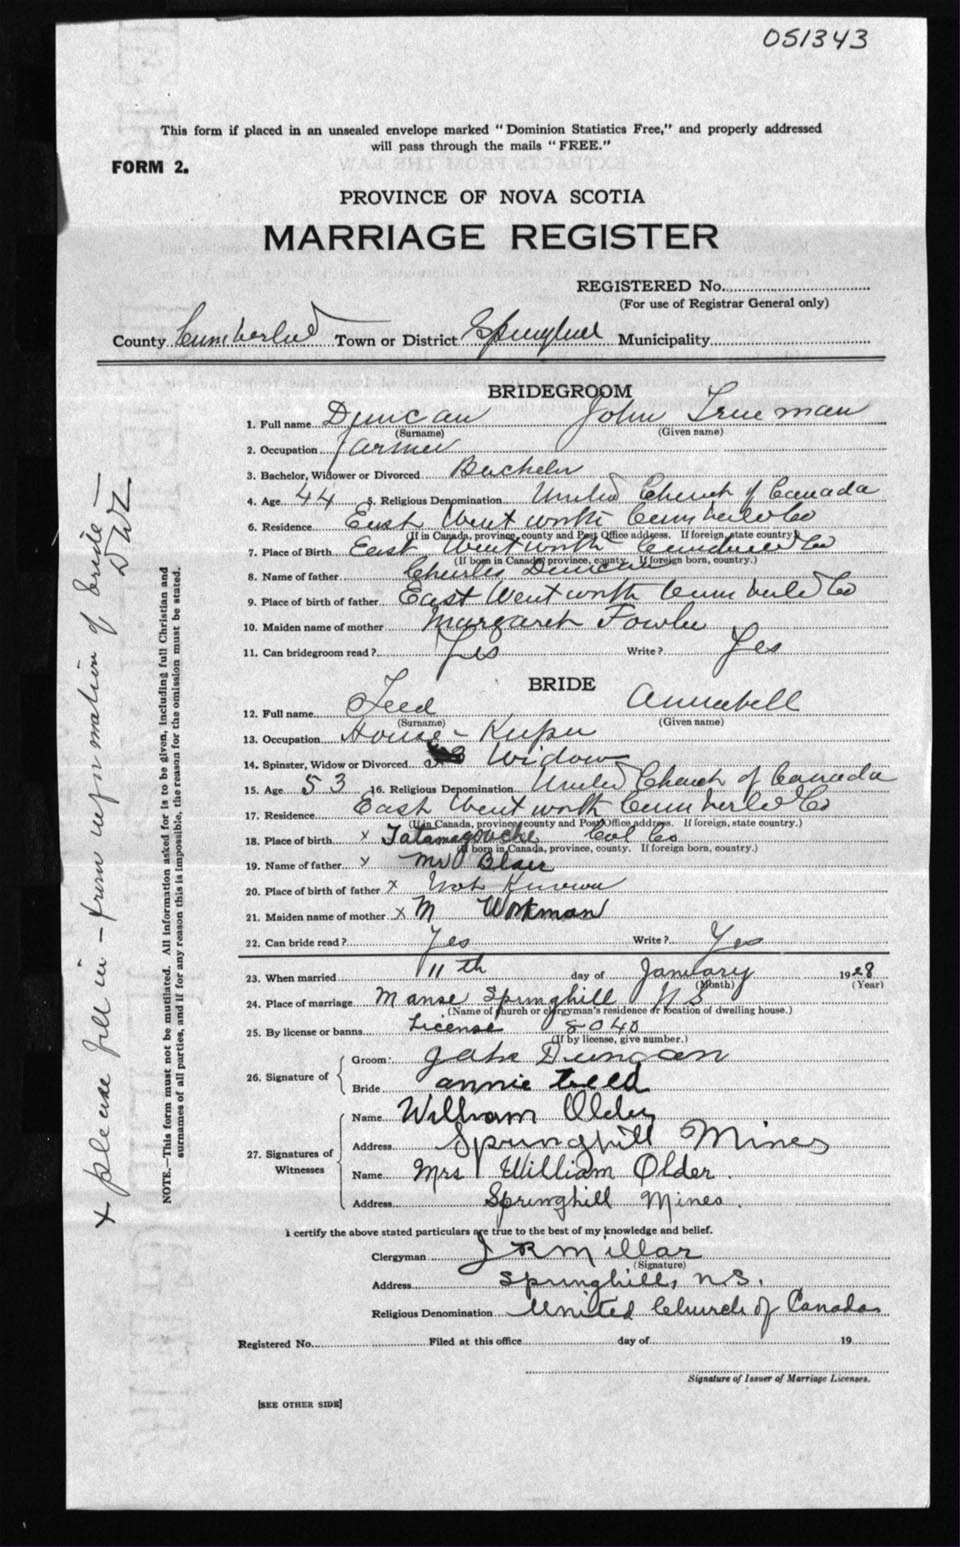 051343
This form if placed in an unsealed envelope marked "Dominion Statistics Free," and properly addressed
will pass through the mails "FREE."
FORM 2.
PROVINCE OF NOVA SCOTIA
MARRIAGE REGISTER
REGISTERED No.
(For use of Registrar General only)
County Cumberland Town or District Springhill Municipality
BRIDEGROOM
1. Full name Duncan John Trueman
(Surname) (Given name)
2. Occupation farmer
3. Bachelor, Widower or Divorced Bachelor
4. Age 44 5. Religious Denomination United Church of Canada
6. Residence East Wentworth Cumberland Co
(If in Canada, province, county and Post Office address. If foreign, state country)
7. Place of Birth East Wentworth Cumberland Co
(If born in Canada, province, county. If foreign born, country.)
8. Name of father Charles Duncan
9. Place of birth of father East Wentworth Cumberland Co
10. Maiden name of mother Margaret Fowler
11. Can bridegroom read? Yes Write? Yes
BRIDE
12. Full name Teed Annabell
(Surname) (Given name)
13. Occupation House-Keeper
14. Spinster, Widow or Divorced Widow
15. Age 53 16. Religious Denomination United Church of Canada
17. Residence East Wentworth Cumberland Co
(If in Canada, province, county and Post Office address. If foreign, state country.)
18. Place of birth x Tatamagouche Col Co
(If born in Canada, province, county. If foreign born, country.)
19. Name of father x Mr Blair
20. Place of birth of father x Not Known
21. Maiden name of mother x M Workman
22. Can bride read? Yes Write? Yes
23. When married 11th day of January 1928
(Month) (Year)
24. Place of marriage Manse Springhill NS
(Name of church or clergyman's residence or location of dwelling house.)
25. By license or banns License 8040
(If by license, give number.)
26. Signature of Groom: John Duncan
Bride annie teed
27. Signatures of Witnesses
Name William Older
Address Springhill Mines
Name Mrs William Older.
Address Springhill Mines
I certify the above stated particulars are true to the best of my knowledge and belief.
Clergyman J R Millar
(Signature)
Address Springhill, N.S.
Religious Denomination United Church of Canada
Registered No. Filed at this office day of 19
Signature of Issuer of Marriage Licenses.
[SEE OTHER SIDE]
x please fill in - from information of bride -
NOTE.—This form must not be mutilated. All information asked for is to be given, including full Christian and
surnames of all parties, and if for any reason this is impossible, the reason for the omission must be stated.